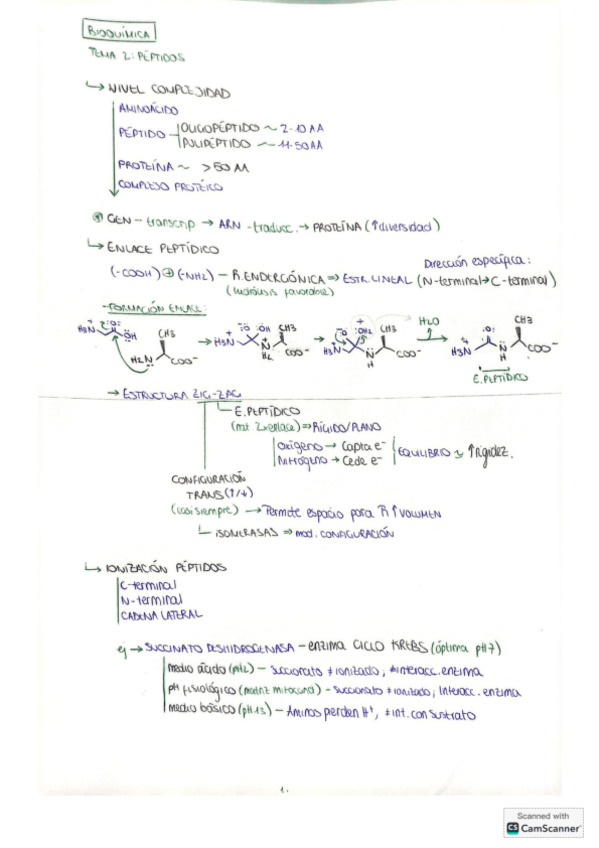 BIOQUÍMICA
TEMA 2: PÉPTIDOS
↳ NIVEL COMPLEJIDAD
AMINOÁCIDO
PÉPTIDO OLIGOPÉPTIDO ~ 2-10 AA
POLIPÉPTIDO ~ 11-50 AA
PROTEÍNA ~ >50 AA
COMPLEJO PROTÉICO
* GEN - transcrip → ARN - traducc. → PROTEÍNA (↑diversidad)
↳ ENLACE PEPTÍDICO
Dirección específica:
(-COOH) ⊕ (-NH2) - R. ENDERGÓNICA ⇒ ESTR. LINEAL (N-terminal → C-terminal)
(hidrólisis favorable)
- FORMACIÓN ENLACE:
H3N+ O OH H2N CH3 COO- → H3N+ O- OH N+ H2 CH3 COO- → H3N+ O- OH2+ N H CH3 COO- → H2O H3N+ O N H CH3 COO-
E. PEPTÍDICO
→ ESTRUCTURA ZIG-ZAG
E. PEPTÍDICO
⇒ RÍGIDO/PLANO
Oxígeno → Capta e-
Nitrógeno → Cede e-
EQUILIBRIO y ↑rigidez.
CONFIGURACIÓN
TRANS (↑/↓)
(casi siempre) → Permite espacio para R ↑ VOLUMEN
↳ ISOMERASAS ⇒ mod. CONFIGURACIÓN
↳ IONIZACIÓN PÉPTIDOS
C-terminal
N-terminal
CADENA LATERAL
ej → SUCCINATO DESHIDROGENASA - enzima CICLO KREBS (óptima pH 7)
medio ácido (pH2) - Succionato ≠ ionizado, ≠ interacc. enzima
pH fisiológico (matriz mitocond) - succionato ≠ ionizado, interacc. enzima
medio básico (pH 13) - Aminos pierden H+, ≠ int. con sustrato
1.
Scanned with
CS CamScanner